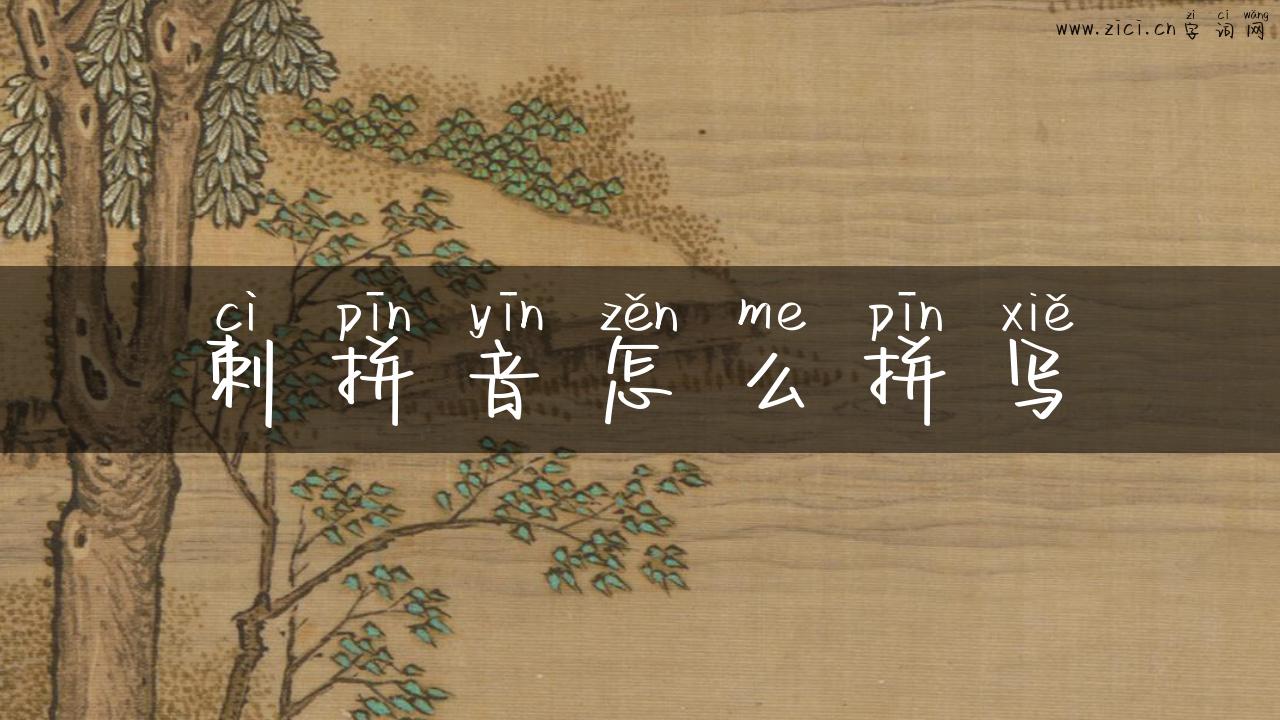 zì cí wǎng
www.zici.cn 字词网
cì pīn yīn zěn me pīn xiě
刺拼音怎么拼写